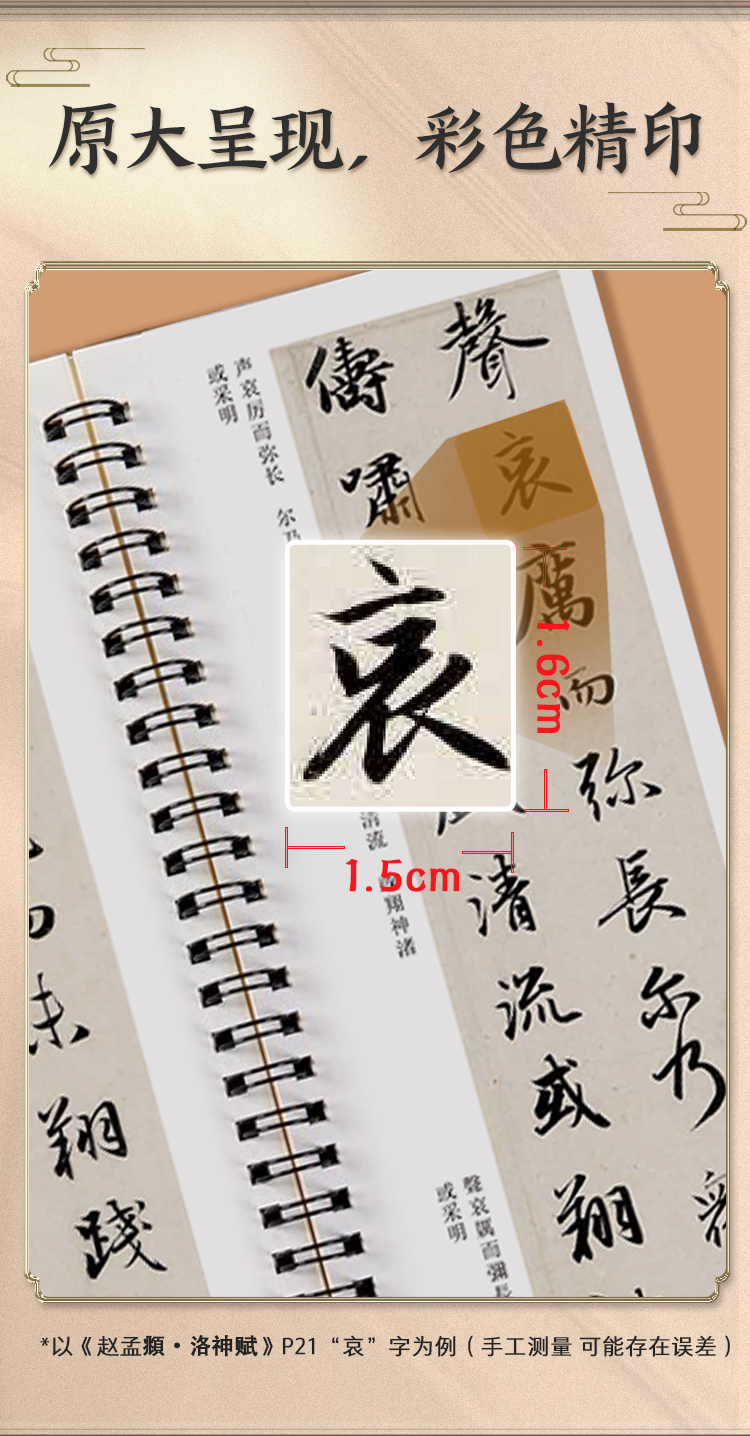 原大呈现，彩色精印
声哀厉而弥长 尔乃
或采明
聲
哀
厲
而
弥
長
尔
乃
儔
嘯
清
流
或
翔
哀
1.6cm
1.5cm
清流
翔神渚
未
翔
踐
聲哀厲而彌長
或采明
*以《赵孟頫·洛神赋》P21“哀”字为例（手工测量 可能存在误差）